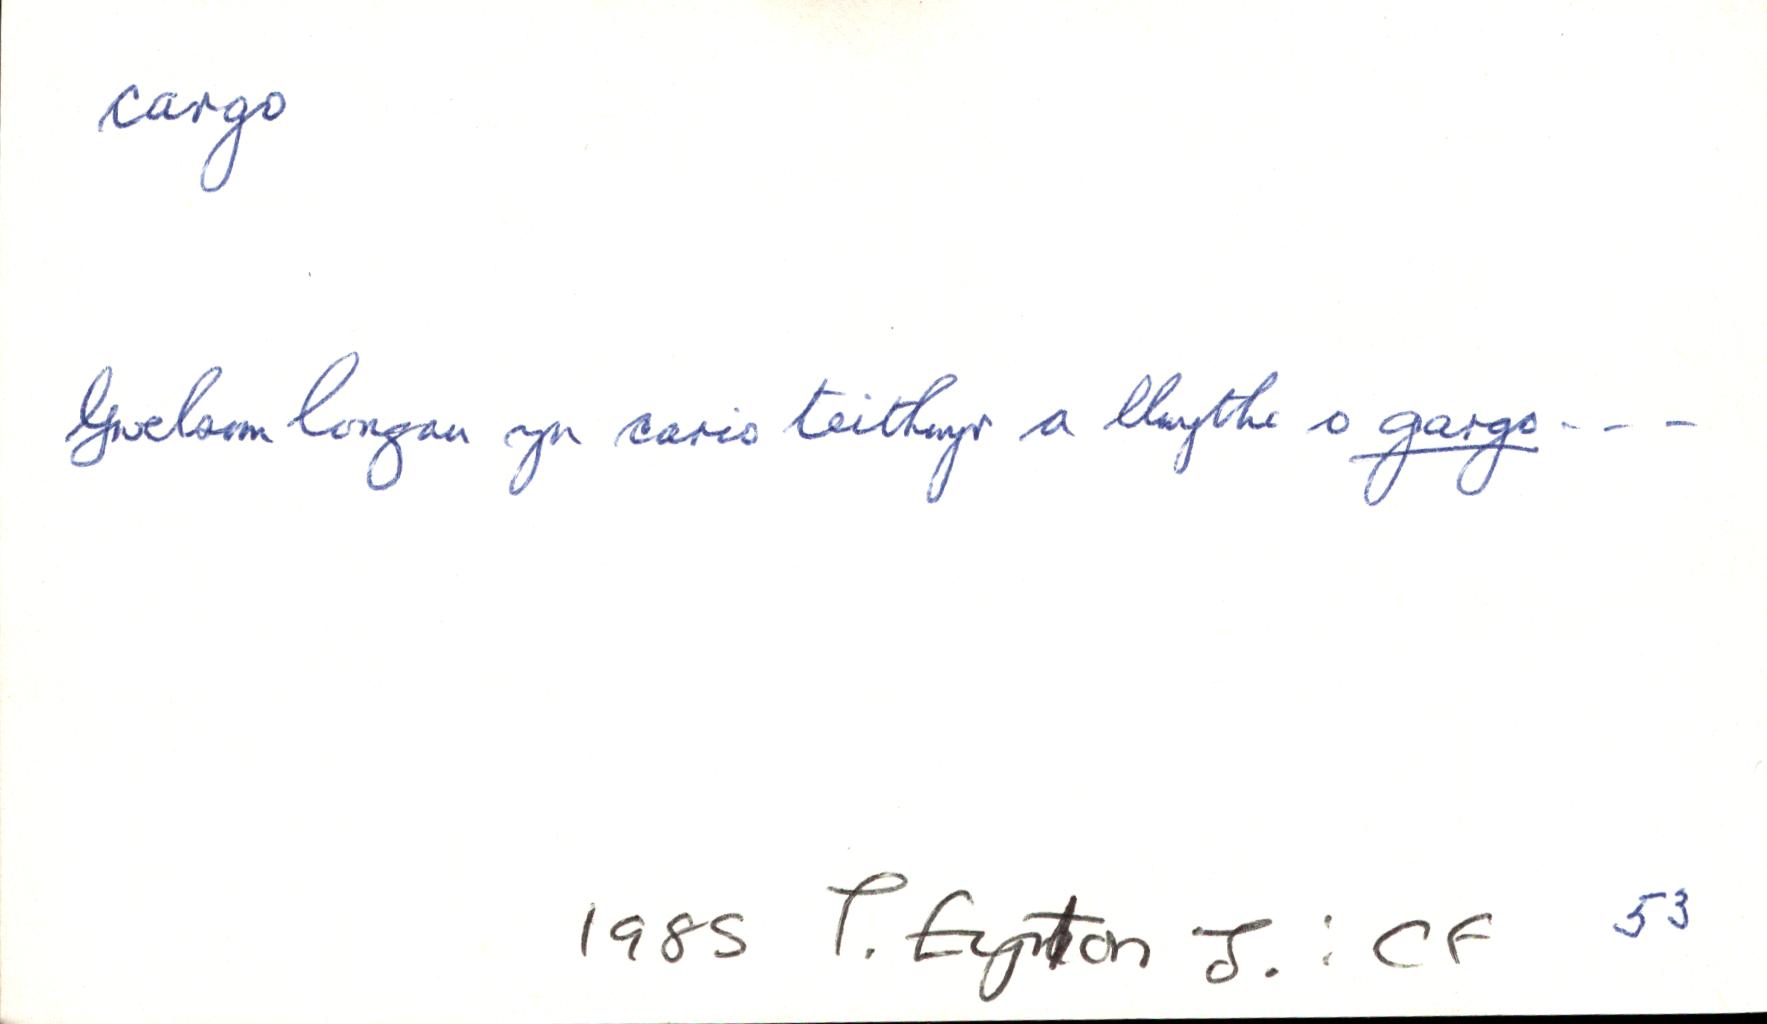 cargo
Gwelsom longau yn cario teithwyr a llwythe o gargo - - -
1985 T. Eyrton J. : CF 53